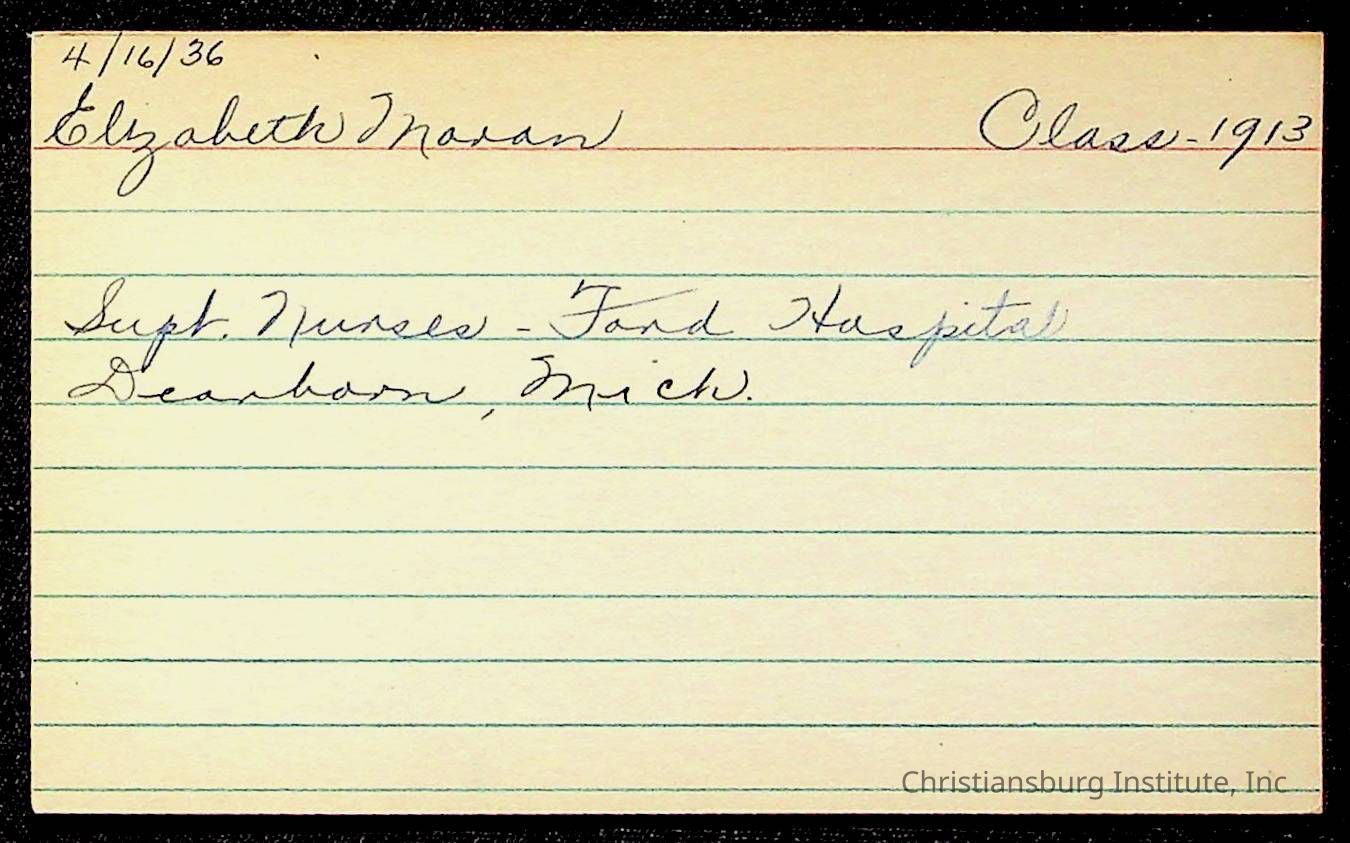 4/16/36
Elizabeth Moran Class-1913
Supt. Nurses - Ford Hospital
Dearborn, Mich.
Christiansburg Institute, Inc